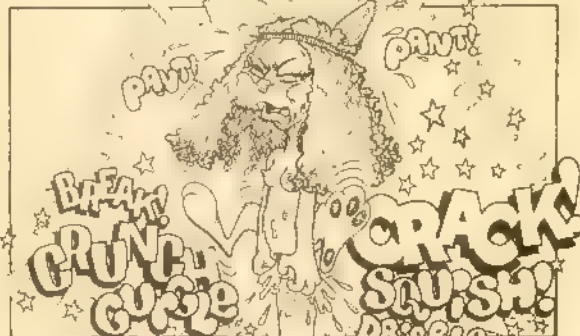 PANT!
PANT!
BREAK!
CRUNCH
GURGLE
CRACK!
SQUISH!